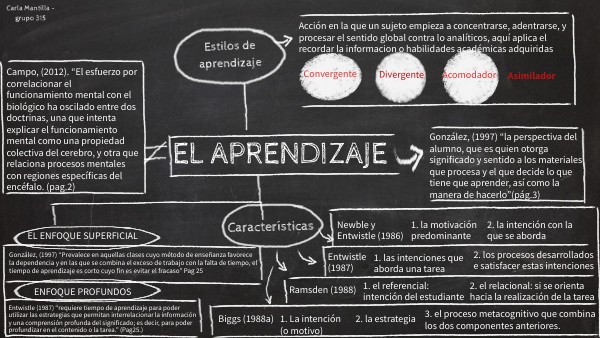 Carla Mantilla -
grupo 315
Estilos de
aprendizaje
Acción en la que un sujeto empieza a concentrarse, adentrarse, y
procesar el sentido global contra lo analíticos, aquí aplica el
recordar la informacion o habilidades académicas adquiridas
Convergente
Divergente
Acomodador
Asimilador
Campo, (2012). “El esfuerzo por
correlacionar el
funcionamiento mental con el
biológico ha oscilado entre dos
doctrinas, una que intenta
explicar el funcionamiento
mental como una propiedad
colectiva del cerebro, y otra que
relaciona procesos mentales
con regiones específicas del
encéfalo. (pag.2)
EL APRENDIZAJE
González, (1997) “la perspectiva del
alumno, que es quien otorga
significado y sentido a los materiales
que procesa y el que decide lo que
tiene que aprender, así como la
manera de hacerlo”(pág.3)
Características
EL ENFOQUE SUPERFICIAL
González, (1997) “Prevalece en aquellas clases cuyo método de enseñanza favorece
la dependencia y en las que se combina el exceso de trabajo con la falta de tiempo, el
tiempo de aprendizaje es corto cuyo fin es evitar el fracaso” Pag 25
ENFOQUE PROFUNDOS
Entwistle (1987) “requiere tiempo de aprendizaje para poder
utilizar las estrategias que permitan interrelacionar la información
y una comprensión profunda del significado; es decir, para poder
profundizar en el contenido o la tarea.” (Pag25.)
Newble y
Entwistle (1986)
1. la motivación
predominante
2. la intención con la
que se aborda
Entwistle
(1987)
1. las intenciones que
aborda una tarea
2. los procesos desarrollados
e satisfacer estas intenciones
Ramsden (1988)
1. el referencial:
intención del estudiante
2. el relacional: si se orienta
hacia la realización de la tarea
Biggs (1988a)
1. La intención
(o motivo)
2. la estrategia
3. el proceso metacognitivo que combina
los dos componentes anteriores.